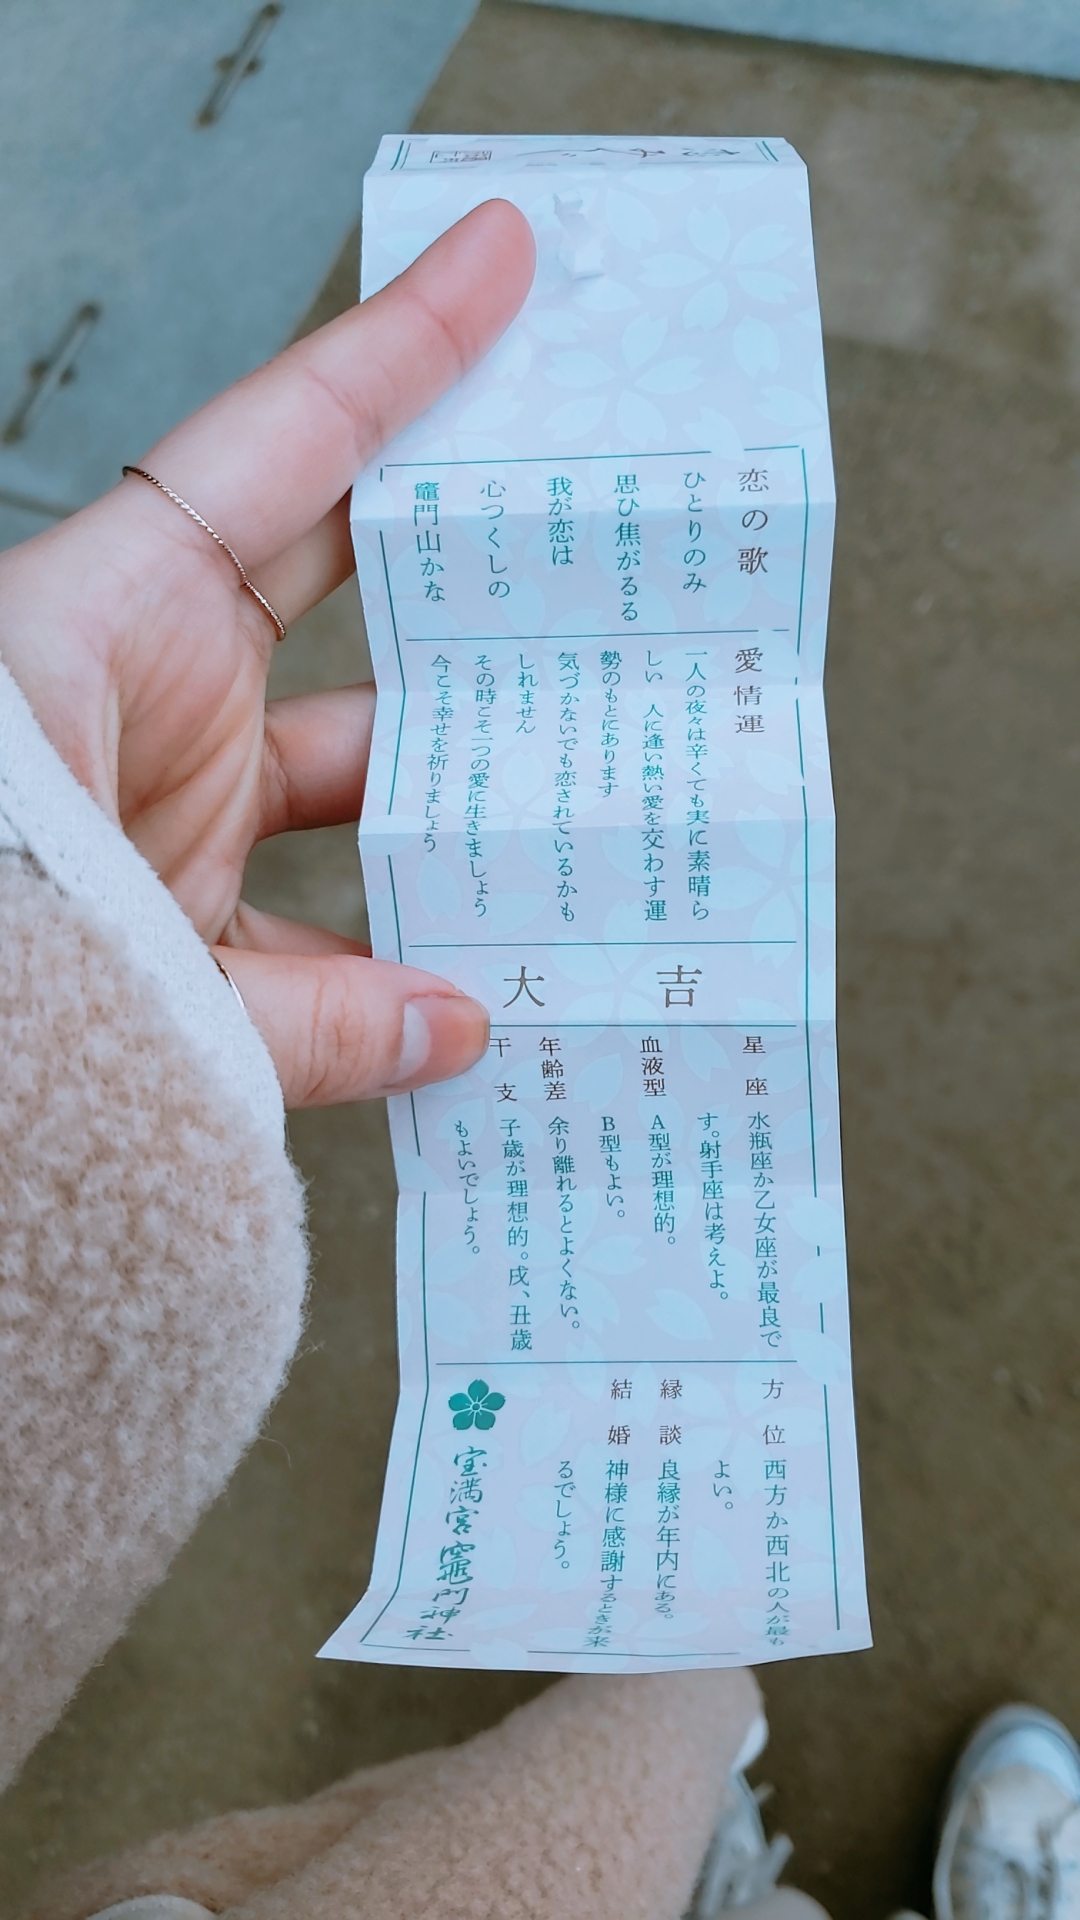 恋の歌
ひとりのみ
思ひ焦がるる
我が恋は
心つくしの
竈門山かな
愛情運
一人の夜々は辛くても実に素晴ら
しい 人に逢い熱い愛を交わす運
勢のもとにあります
気づかないでも恋されているかも
しれません
その時こそ一つの愛に生きましょう
今こそ幸せを祈りましょう
大吉
星座 水瓶座か乙女座が最良で
す。射手座は考えよ。
血液型 A型が理想的。
B型もよい。
年齢差 余り離れるとよくない。
干支 子歳が理想的。戌、丑歳
もよいでしょう。
方位 西方か西北の人が最も
よい。
縁談 良縁が年内にある。
結婚 神様に感謝するときが来
るでしょう。
宝満宮竈門神社